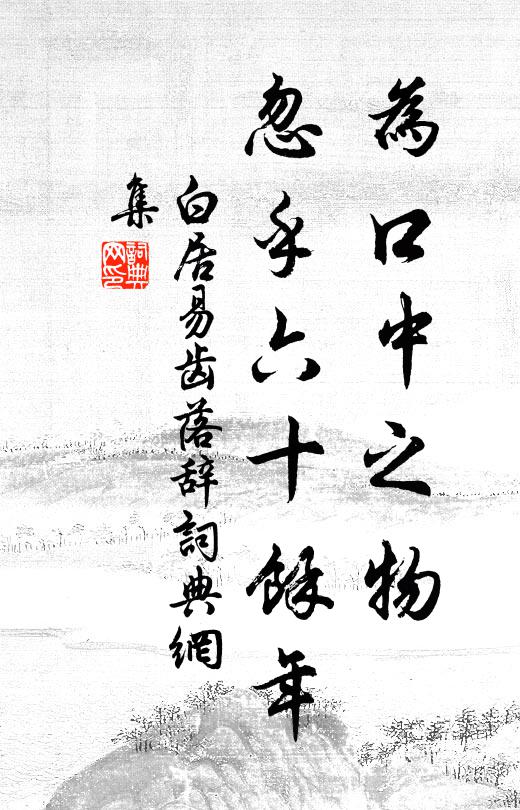 為口中之物
忽乎六十餘年
白居易齿落辞詞典網
集
詞典
网印